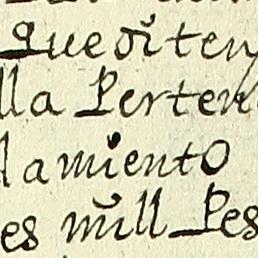 que
lla Perten
lamiento
es mill Pes